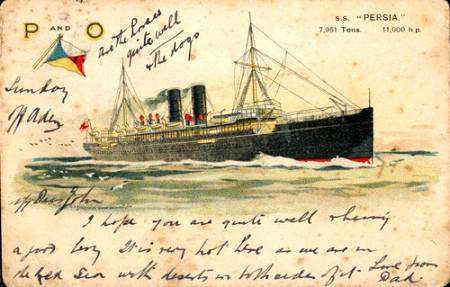 P AND O
S.S. "PERSIA."
7,951 Tons. 11,000 h.p.
are the horses
quite well
& the dogs
Sunday
off Aden
My Dear John
I hope you are quite well & being
a good boy. It is very hot here as we are in
the Red Sea with deserts on both sides of it. Love from
Dad.